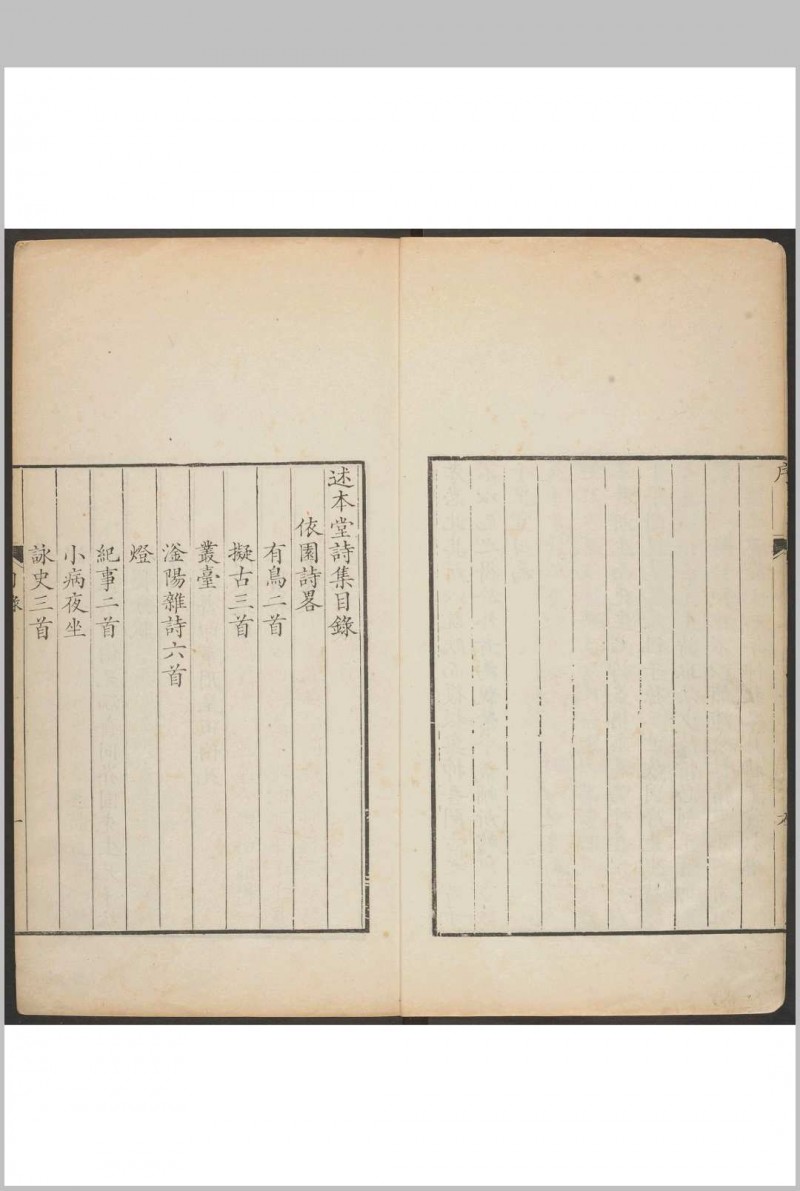 序
九
述本堂詩集目錄
依園詩畧
有鳥二首
擬古三首
叢臺
滏陽雜詩六首
燈
紀事二首
小病夜坐
詠史三首
目錄
一